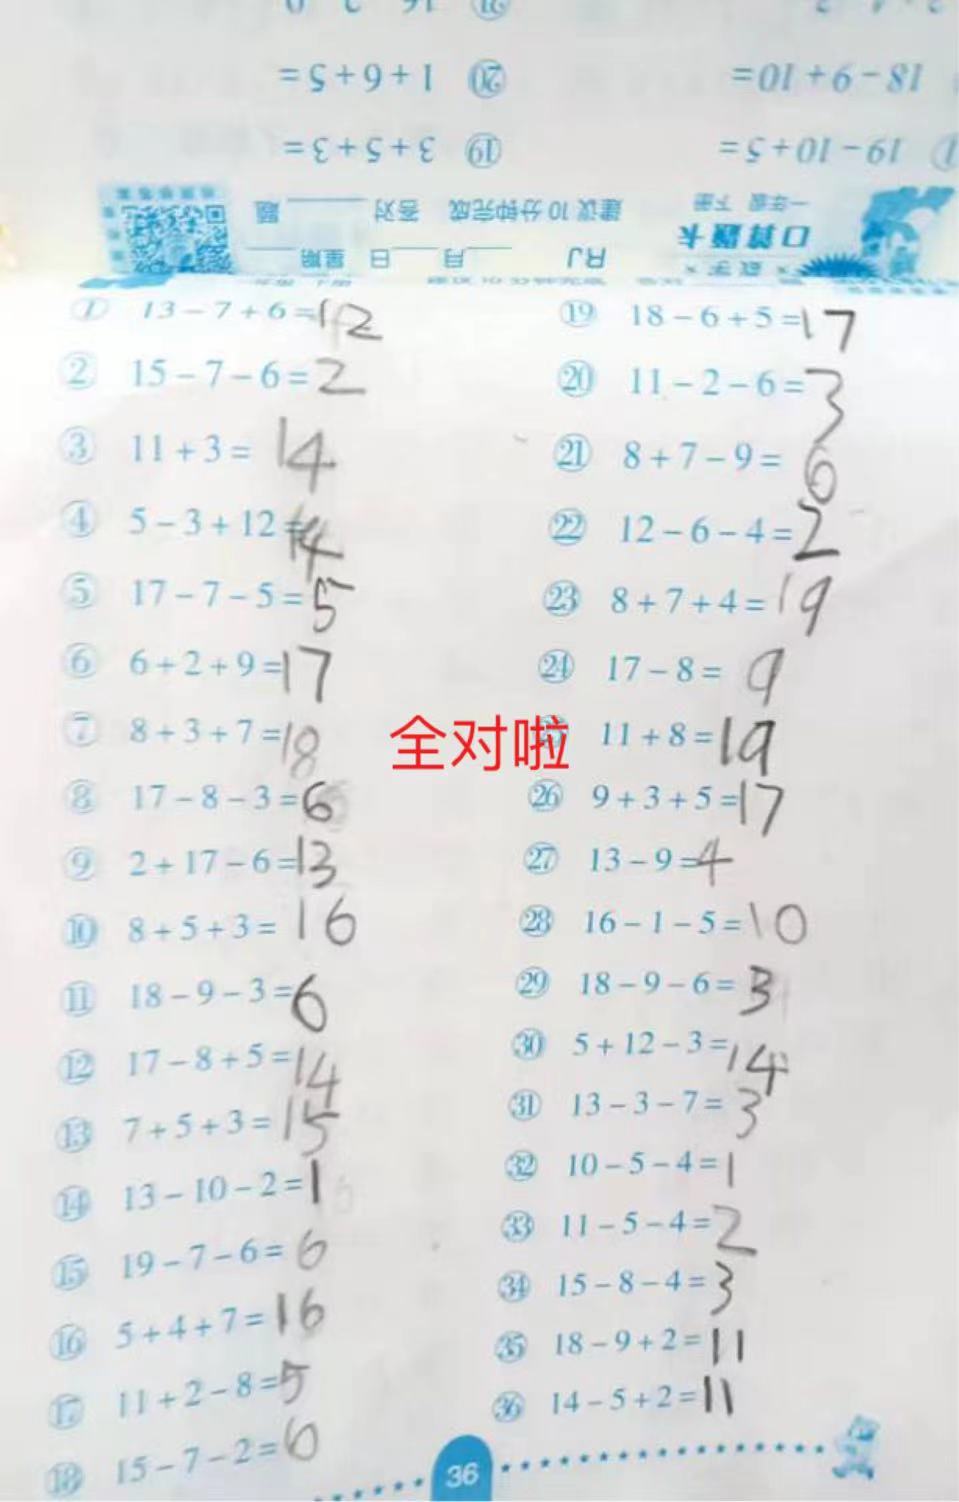 ⑳ 1+6+5=
18-9+10=
⑲ 3+5+3=
19-10+5=
建议10分钟完成 答对 题
一年级 下册
口算题卡
RJ 月 日 星期
① 13-7+6=12
② 15-7-6=2
③ 11+3=14
④ 5-3+12=14
⑤ 17-7-5=5
⑥ 6+2+9=17
⑦ 8+3+7=18
⑧ 17-8-3=6
⑨ 2+17-6=13
⑩ 8+5+3=16
⑪ 18-9-3=6
⑫ 17-8+5=14
⑬ 7+5+3=15
⑭ 13-10-2=1
⑮ 19-7-6=6
⑯ 5+4+7=16
⑰ 11+2-8=5
⑱ 15-7-2=6
⑲ 18-6+5=17
⑳ 11-2-6=3
㉑ 8+7-9=6
㉒ 12-6-4=2
㉓ 8+7+4=19
㉔ 17-8=9
全对啦
11+8=19
㉖ 9+3+5=17
㉗ 13-9=4
㉘ 16-1-5=10
㉙ 18-9-6=3
㉚ 5+12-3=14
㉛ 13-3-7=3
㉜ 10-5-4=1
㉝ 11-5-4=2
㉞ 15-8-4=3
㉟ 18-9+2=11
㊱ 14-5+2=11
36